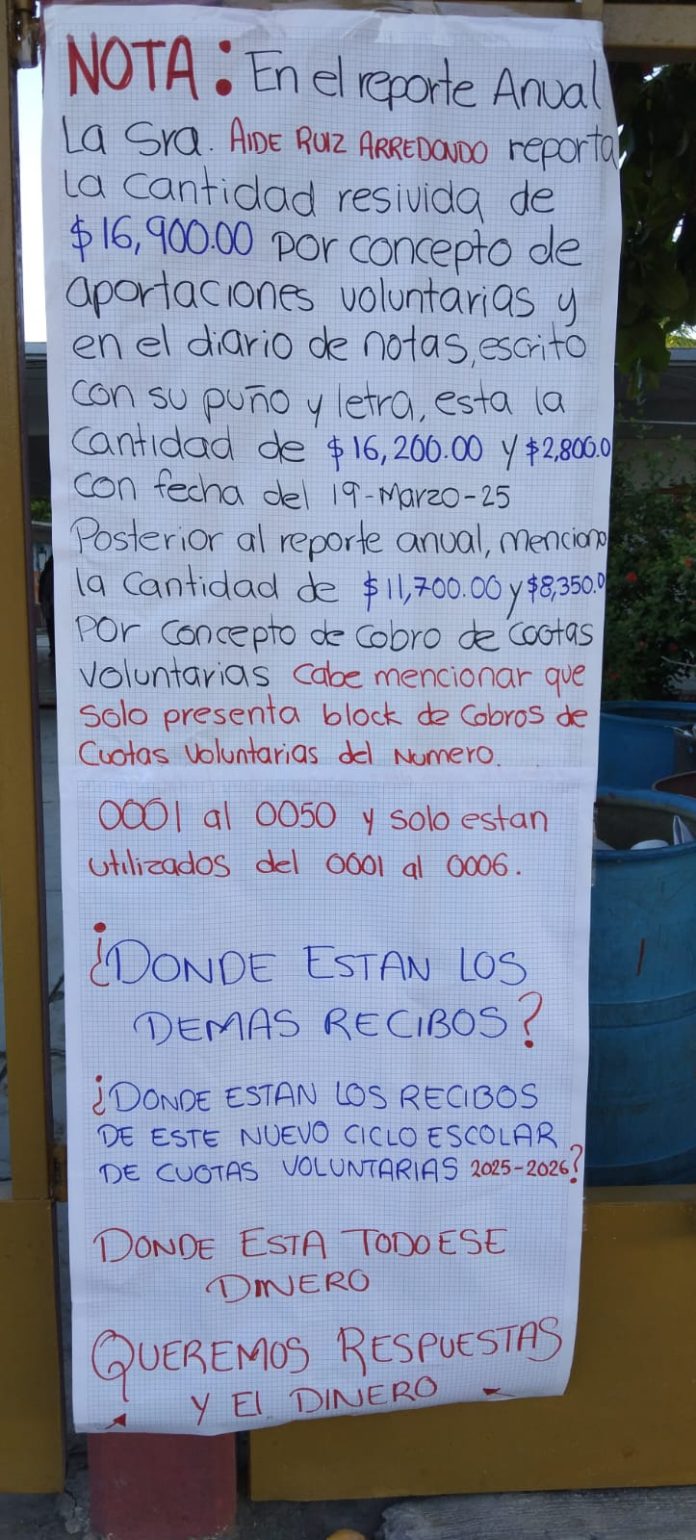 NOTA: En el reporte Anual
La Sra. AIDE RUIZ ARREDONDO reporta
La Cantidad resivida de
$16,900.00 por concepto de
aportaciones voluntarias y
en el diario de notas, escrito
con su puño y letra, esta la
Cantidad de $16,200.00 y $2,800.0
con fecha del 19-Marzo-25
Posterior al reporte anual, menciono
la Cantidad de $11,700.00 y $8,350.0
POr concepto de Cobro de Cootas
Voluntarias Cabe mencionar que
Solo presenta block de Cobros de
Cuotas Voluntarias del Numero.
0001 al 0050 y solo estan
utilizados del 0001 al 0006.
¿DONDE ESTAN LOS
DEMAS RECIBOS?
¿DONDE ESTAN LOS RECIBOS
DE ESTE NUEVO CICLO ESCOLAR
DE CUOTAS VOLUNTARIAS 2025-2026?
DONDE ESTA TODO ESE
DINERO
QUEREMOS RESPUESTAS
Y El DINERO